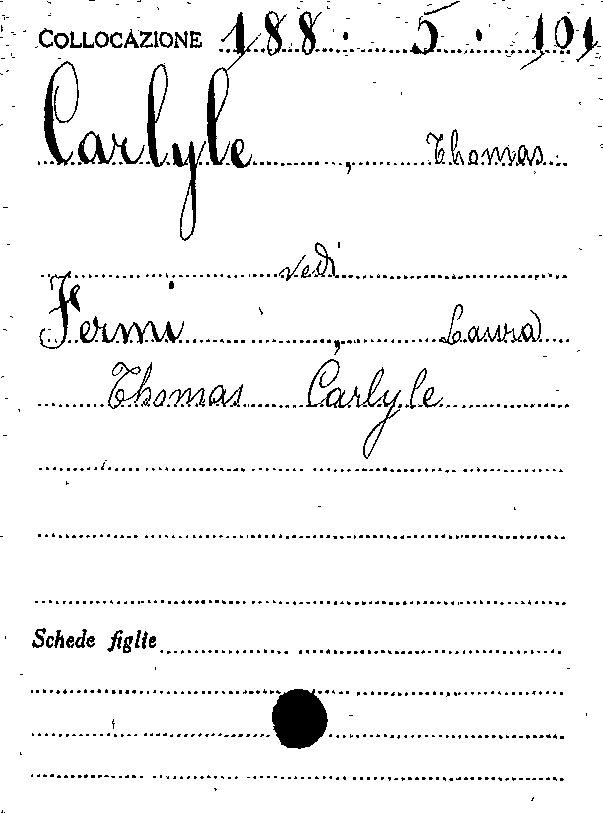 COLLOCAZIONE 188. 5. 101
Carlyle, Thomas
vedi
Fermi, Laura
Thomas Carlyle
Schede figlie